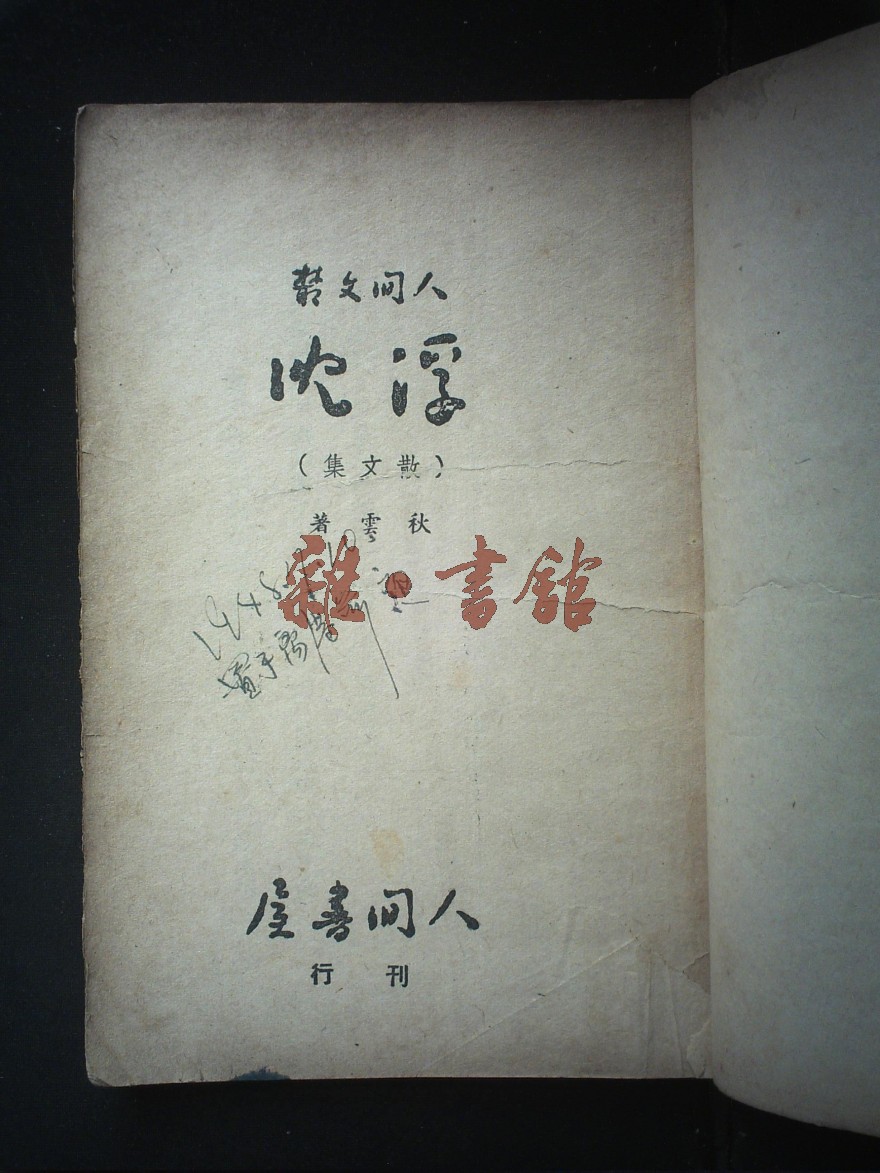 人間文叢
浮沈
(散文集)
秋雲著
雜·書館
1948
人間書屋
刊行